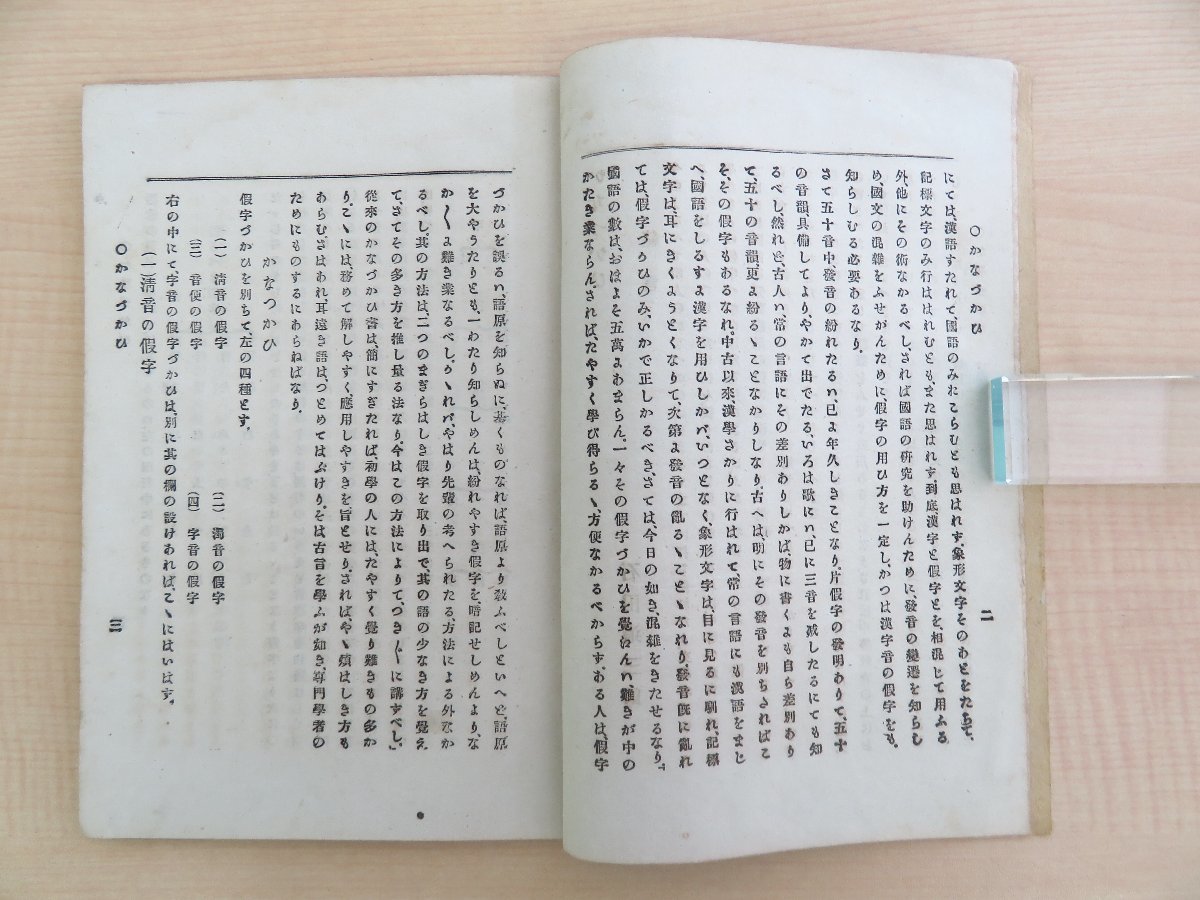 ○かなづかひ
二
にては、漢語すたれて、國語のみおこらむとも思はれず、象形文字そのあとをたちて、
記標文字のみ行はれむとも、また思はれず、到底漢字と假字とを、相混じて用ふる
外他にその術なかるべし、されば國語の研究を助けんために、發音の變遷を知らし
め國文の混雜をふせがんために、假字の用ひ方を一定し、かつは漢字音の假字をも、
知らしむる必要あるなり。
さて五十音中發音の紛れたるハ、已よ年久しきことなり。片假字の發明ありて、五十
の音韻、具備してより、やかて出でたる、いろは歌にハ、已に三音を减したるにても知
るべし、然れど古人ハ、常の言語にその差別ありしかば物に書くよも自ら差別あり
て、五十の音韻更よ紛るゝことなかりしなり、古へは明にその發音を別ちさればこ
そ、その假字もあるなれ。中古以來、漢學さかりに行はれて常の言語にも漢語をまじ
へ、國語をしるすよ漢字を用ひしかバ、いつとなく、象形文字は、目に見るに馴れ、記標
文字は、耳にきくようとくなりて、次第よ發音の亂るゝことゝなれり、發音旣に亂れ
ては、假字づかひのみ、いかで正しかるべき、さては、今日の如き、混雜をきたせるなり。
國語の數は、おほよそ五萬よあまらん。一々その假字づかひを覺ねんハ、難きが中の
かたき業ならん、されば、たやすく學び得らるゝ方便なかるべからず、ある人は、假字
づかひを誤るハ語原を知らぬに、基くものなれば、語原より敎ふべしといへど、語原
を大やうたりとも、一わたり知らしめんは、紛れやすき假字を、暗記せしめんより、な
か〱よ難き業なるべし、かゝれバ、やはり先輩の考へられたる、方法による外なか
るべし、其の方法は、二つのまぎらはしき假字を取り出で、其の語の少なき方を覺え
て、さてその多き方を推し量る法なり。今はこの方法によりて、つき〱に講すべし、
從來のかなづかひ書は、簡にすぎたれば、初學の人には、たやすく覺り難きもの多か
り。こゝには、務めて解しやすく、應用しやすきを旨とせり。されば、やゝ煩はしき方も
あらむ、さはあれ耳遠き語は、つとめてはぶけり。そは古言を學ふが如き、專門學者の
ためにものするにあらねばなり。
かなつかひ
假字づかひを別ちて、左の四種とす。
(一) 淸音の假字 (二) 濁音の假字
(三) 音便の假字 (四) 字音の假字
右の中にて、字音の假字づかひは、別に其の欄の設けあれば、こゝにはいはず。
(一)淸音の假字
○かなづかひ
三